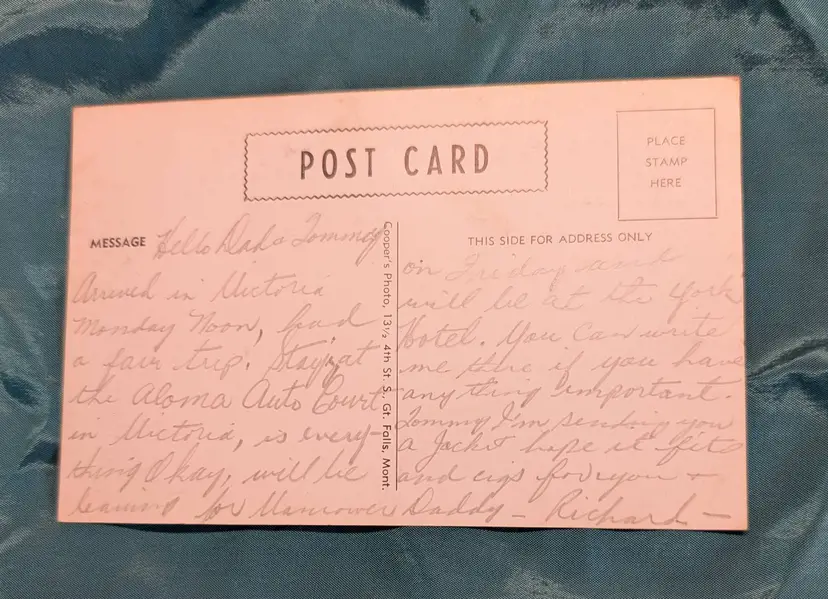 POST CARD
PLACE
STAMP
HERE
MESSAGE
Hello Dad & Tommy
Arrived in Victoria
Monday Noon, had
a fair trip. Staying at
the Aloma Auto Court
in Victoria, is every-
thing Okay, will be
leaving for Vancouver
Cooper's Photo, 13½ 4th St. S., Gt. Falls, Mont.
THIS SIDE FOR ADDRESS ONLY
on Friday and
will be at the York
Hotel. You can write
me there if you have
anything important.
Tommy I'm sending you
a Jacket hope it fits
and cigs for you &
Daddy — Richard —